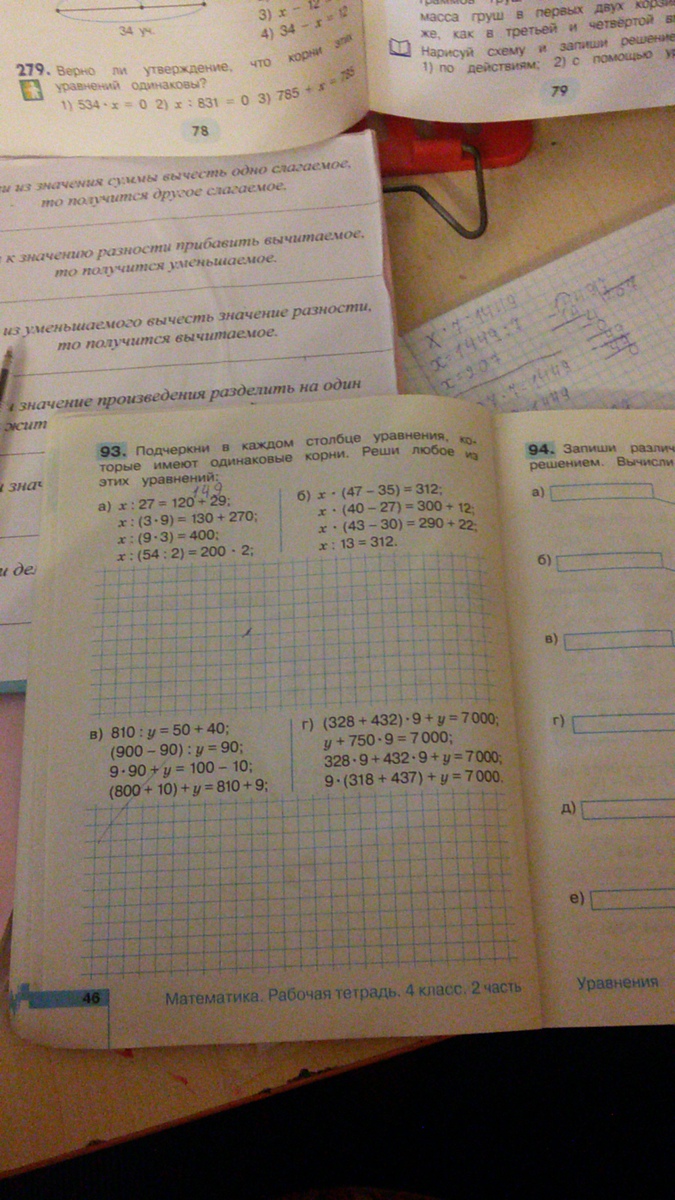 34 уч.
3) x − 12
4) 34 − x = 12
279. Верно ли утверждение, что корни этих
уравнений одинаковы?
1) 534 · x = 0 2) x : 831 = 0 3) 785 + x = 785
78
масса груш в первых двух корзи
же, как в третьей и четвёртой в
Нарисуй схему и запиши решение
1) по действиям; 2) с помощью
79
из значения суммы вычесть одно слагаемое,
то получится другое слагаемое.
к значению разности прибавить вычитаемое,
то получится уменьшаемое.
из уменьшаемого вычесть значение разности,
то получится вычитаемое.
значение произведения разделить на один
жит
знач
и дел
x · 7 = 1449
x = 1449 : 7
x = 207
93. Подчеркни в каждом столбце уравнения, ко-
торые имеют одинаковые корни. Реши любое из
этих уравнений:
149
а) x : 27 = 120 + 29;
x : (3 · 9) = 130 + 270;
x : (9 · 3) = 400;
x : (54 : 2) = 200 · 2;
б) x · (47 − 35) = 312;
x · (40 − 27) = 300 + 12;
x · (43 − 30) = 290 + 22;
x : 13 = 312.
в) 810 : y = 50 + 40;
(900 − 90) : y = 90;
9 · 90 + y = 100 − 10;
(800 + 10) + y = 810 + 9;
г) (328 + 432) · 9 + y = 7000;
y + 750 · 9 = 7000;
328 · 9 + 432 · 9 + y = 7000;
9 · (318 + 437) + y = 7000.
46
Математика. Рабочая тетрадь. 4 класс. 2 часть
94. Запиши различ
решением. Вычисли
а)
б)
в)
г)
д)
е)
Уравнения